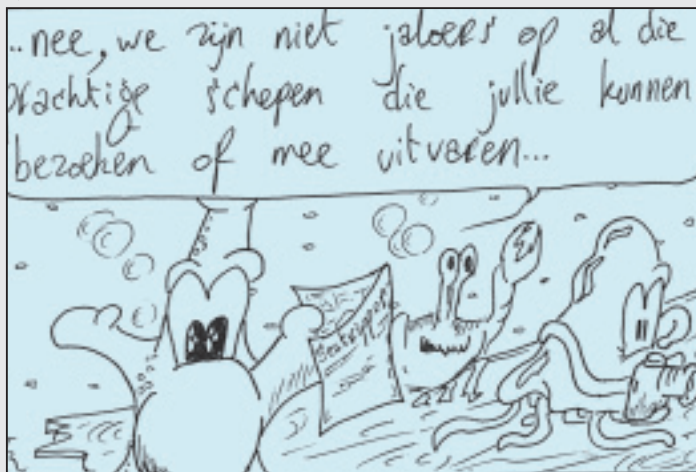 ..nee, we zijn niet jaloers op al die
prachtige schepen die jullie kunnen
bezoeken of mee uitvaren...